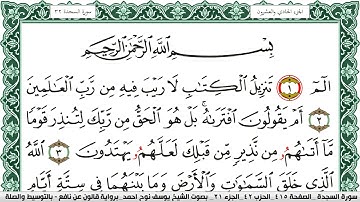 الجزء الحادي والعشرون
سورة السجدة ٣٢
بِسْمِ اللَّهِ الرَّحْمَٰنِ الرَّحِيمِ
الٓمٓ ١ تَنزِيلُ الْكِتَٰبِ لَا رَيْبَ فِيهِ مِن رَّبِّ الْعَٰلَمِينَ
٢ أَمْ يَقُولُونَ افْتَرَىٰهُ بَلْ هُوَ الْحَقُّ مِن رَّبِّكَ لِتُنذِرَ قَوْمًا
مَّا أَتَىٰهُمُ مِّن نَّذِيرٍ مِّن قَبْلِكَ لَعَلَّهُمُ يَهْتَدُونَ ٣ اللَّهُ
الَّذِي خَلَقَ السَّمَٰوَٰتِ وَالْأَرْضَ وَمَا بَيْنَهُمَا فِي سِتَّةِ أَيَّامٍ
سورة السجدة - الصفحة ٤١٥ - الحزب ٤٢ - الجزء ٢١ - بصوت الشيخ يوسف نوح احمد - برواية قالون عن نافع - بالتوسيط والصلة